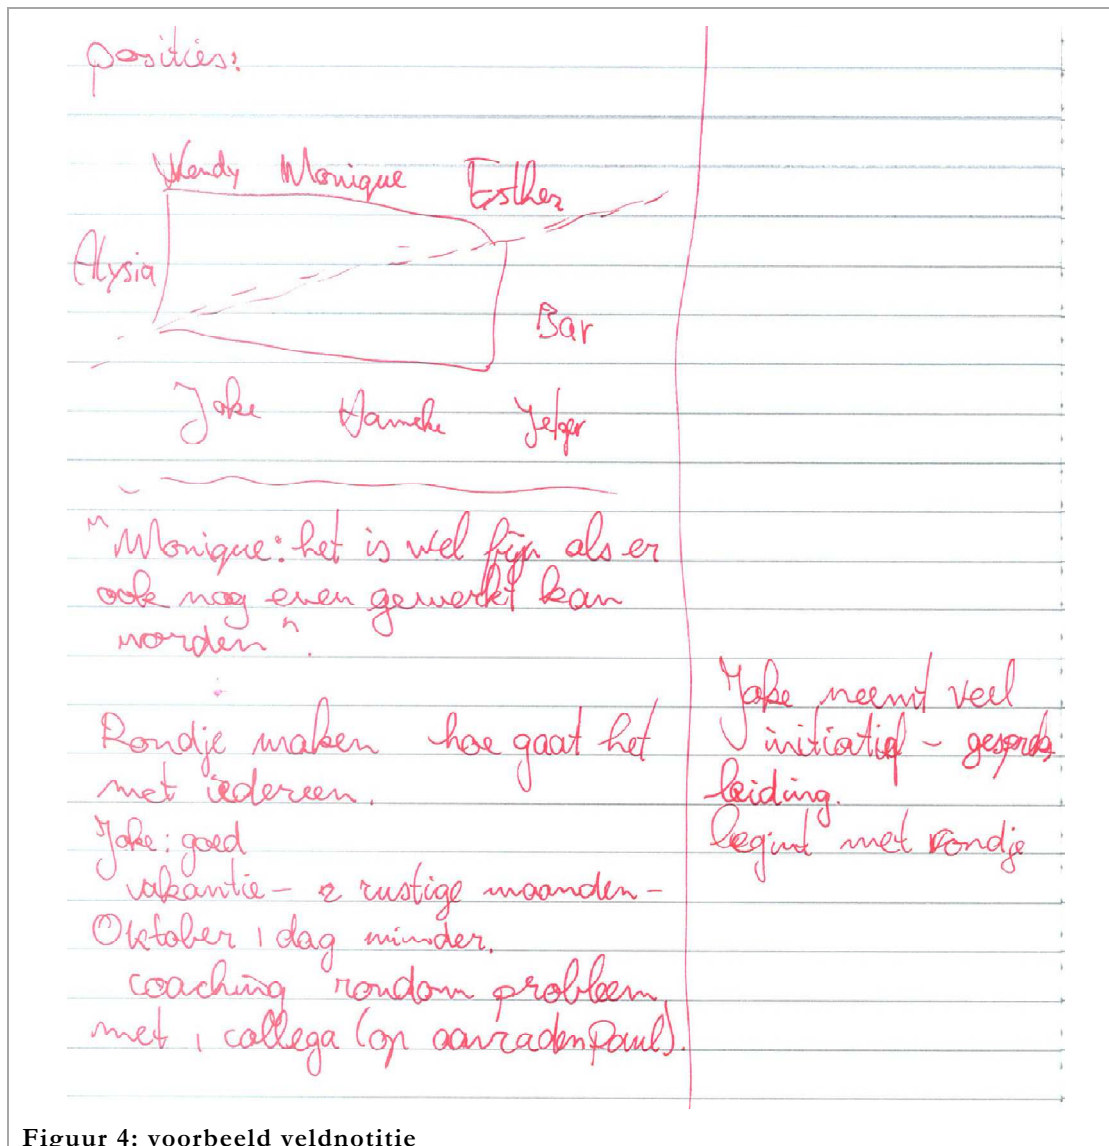 posities:
Wendy Monique Esther
Alysia
Bar
Joke Hanneke Jelger
"Monique: het is wel fijn als er
ook nog even gewerkt kan
worden".
Rondje maken hoe gaat het
met iedereen.
Joke: goed
vakantie - 2 rustige maanden -
Oktober 1 dag minder.
coaching rondom probleem
met 1 collega (op aanraden Paul).
Joke neemt veel
initiatief - gespreks
leiding.
begint met rondje
Figuur 4: voorbeeld veldnotitie